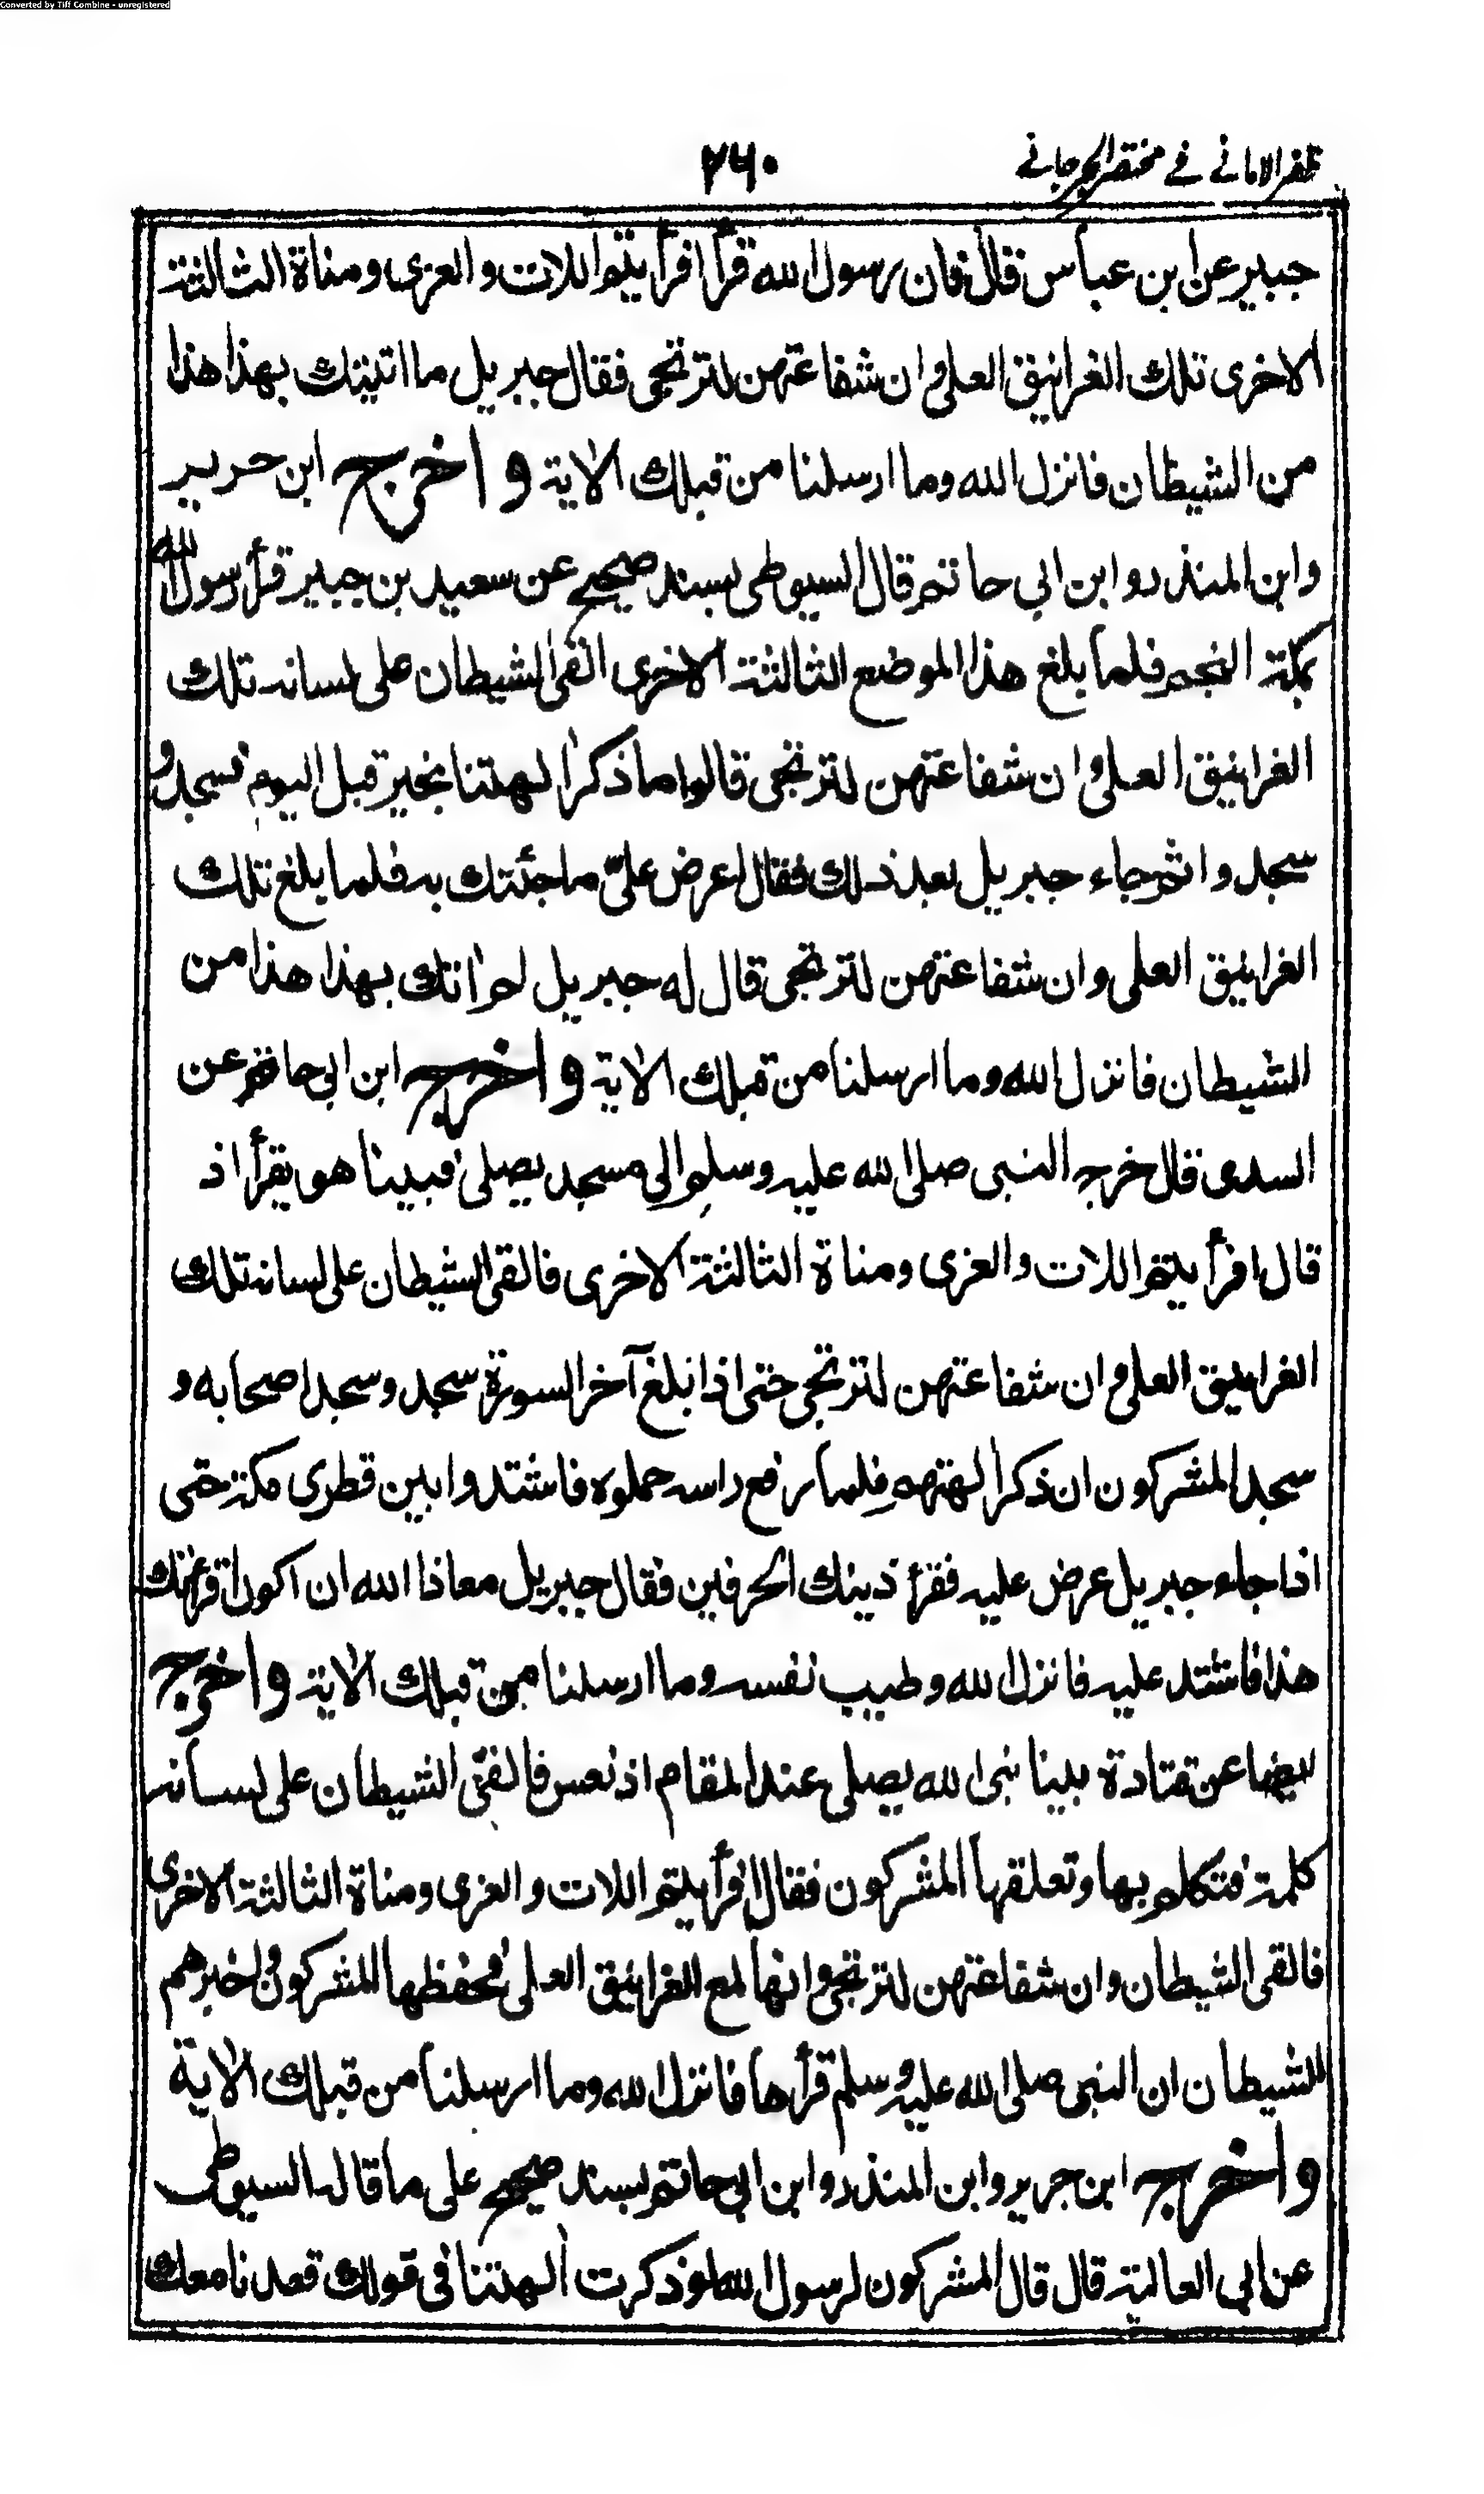 Converted by Tiff Combine - unregistered
ظفر الامانی فے مختصر الجرجانے
۲۶۰
جبير عن ابن عباس قال فان رسول الله قرأ افرأيتم اللات والعزى ومناة الثالثة
الاخرى تلك الغرانيق العلى وان شفاعتهن لترتجى فقال جبريل ما اتيتك بهذا هذا
من الشيطان فانزل الله وما ارسلنا من قبلك الاية واخرج ابن جرير
وابن المنذر وابن ابي حاتم قال السيوطى بسند صحيح عن سعيد بن جبير قرأ رسول الله
بمكة النجم فلما بلغ هذا الموضع الثالثة الاخرى القى الشيطان على لسانه تلك
الغرانيق العلى وان شفاعتهن لترتجى قالوا ما ذكر الهتنا بخير قبل اليوم فسجد و
سجدوا ثم جاء جبريل بعد ذلك فقال اعرض علىّ ما جئتك به فلما بلغ تلك
الغرانيق العلى وان شفاعتهن لترتجى قال له جبريل لم اتك بهذا هذا من
الشيطان فانزل الله وما ارسلنا من قبلك الاية واخرج ابن ابي حاتم عن
السدى قال خرج النبى صلى الله عليه وسلم الى مسجد يصلى فبينا هو يقرأ اذ
قال افرأيتم اللات والعزى ومناة الثالثة الاخرى فالقى الشيطان على لسانه تلك
الغرانيق العلى وان شفاعتهن لترتجى حتى اذا بلغ آخر السورة سجد وسجد اصحابه و
سجد المشركون ان ذكر الهتهم فلما رفع راسه حملوه فاشتدوا بين قطرى مكة حتى
اذا جاء جبريل عرض عليه فقرأ ذينك الحرفين فقال جبريل معاذ الله ان اكون اقرأتك
هذا فاشتد عليه فانزل الله وطيب نفسه وما ارسلنا من قبلك الاية واخرج
ايضا عن قتادة بينا نبى الله يصلى عند المقام اذ نعس فالقى الشيطان على لسانه
كلمة فتكلم بها وتعلقها المشركون فقال افرأيتم اللات والعزى ومناة الثالثة الاخرى
فالقى الشيطان وان شفاعتهن لترتجى وانها لمع الغرانيق العلى فحفظها المشركون واخبرهم
الشيطان ان النبى صلى الله عليه وسلم قرأها فانزل الله وما ارسلنا من قبلك الاية
واخرج ابن جرير وابن المنذر وابن ابي حاتم بسند صحيح على ما قاله السيوطى
عن ابي العالية قال قال المشركون لرسول الله لو ذكرت الهتنا فى قولك قعدنا معك